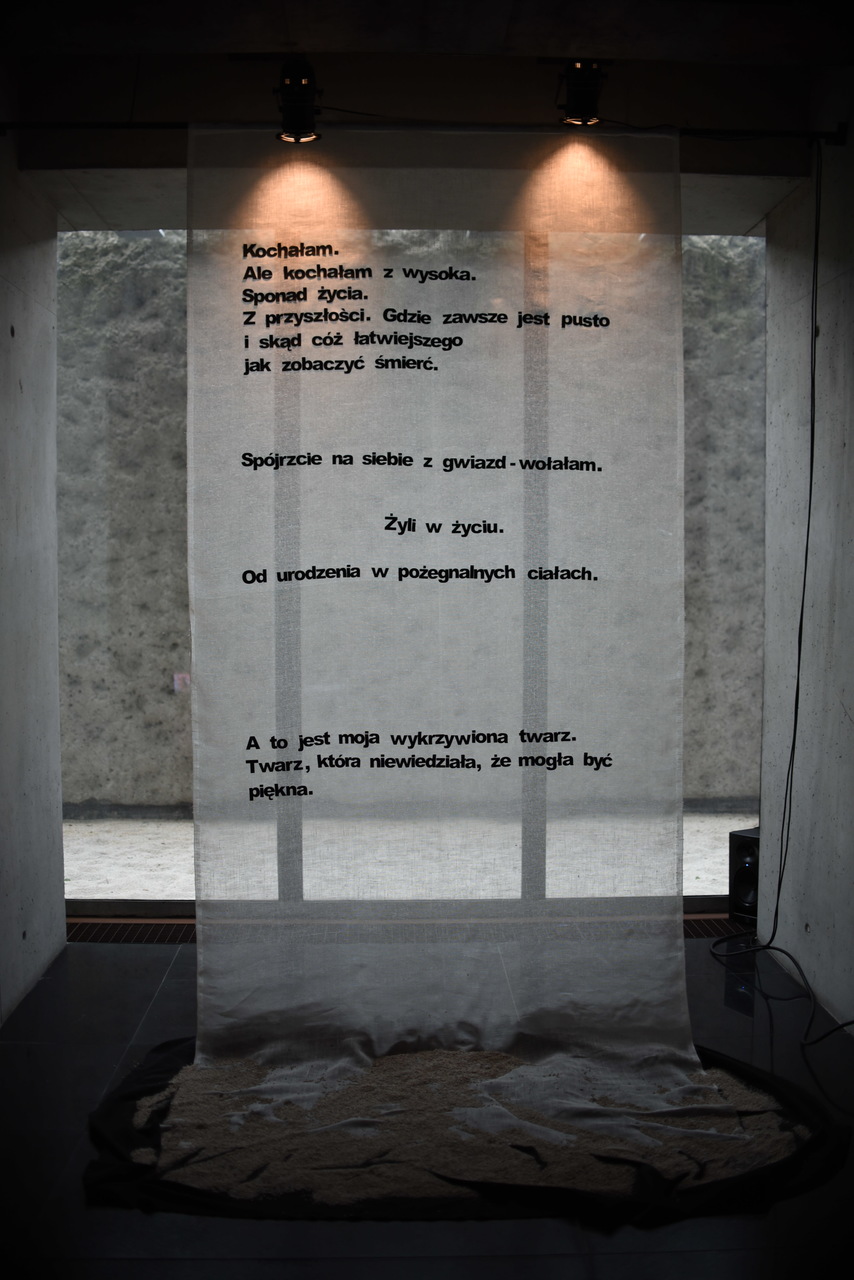 Kochałam.
Ale kochałam z wysoka.
Sponad życia.
Z przyszłości. Gdzie zawsze jest pusto
i skąd cóż łatwiejszego
jak zobaczyć śmierć.
Spójrzcie na siebie z gwiazd - wołałam.
Żyli w życiu.
Od urodzenia w pożegnalnych ciałach.
A to jest moja wykrzywiona twarz.
Twarz, która niewiedziała, że mogła być
piękna.